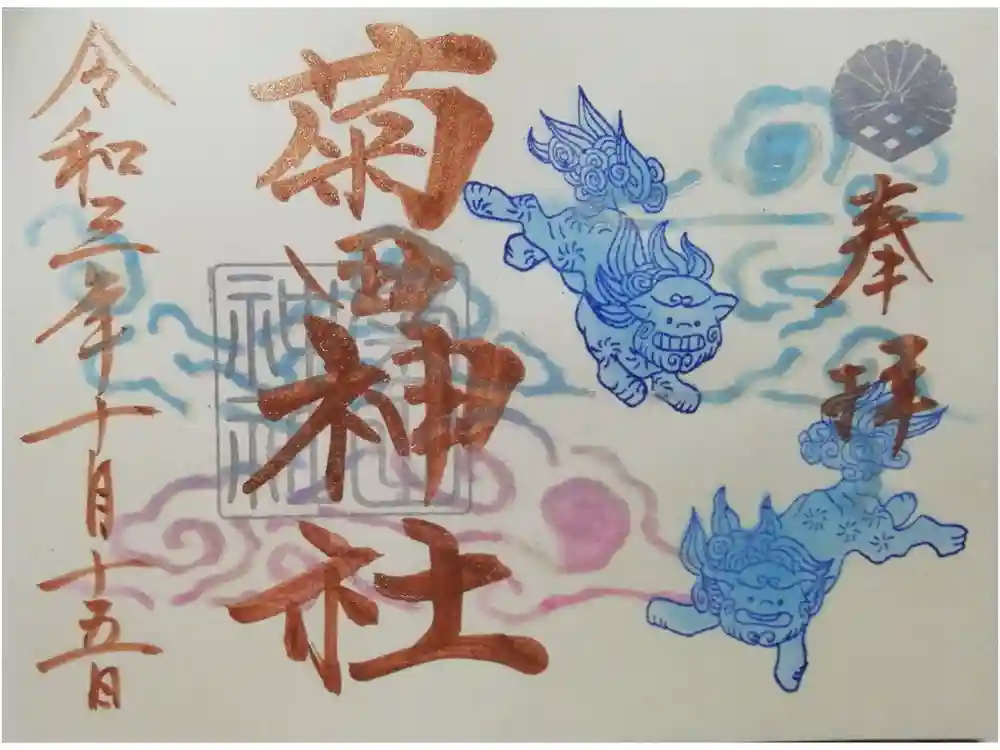 奉拝
菊田神社
令和三年十月十五日